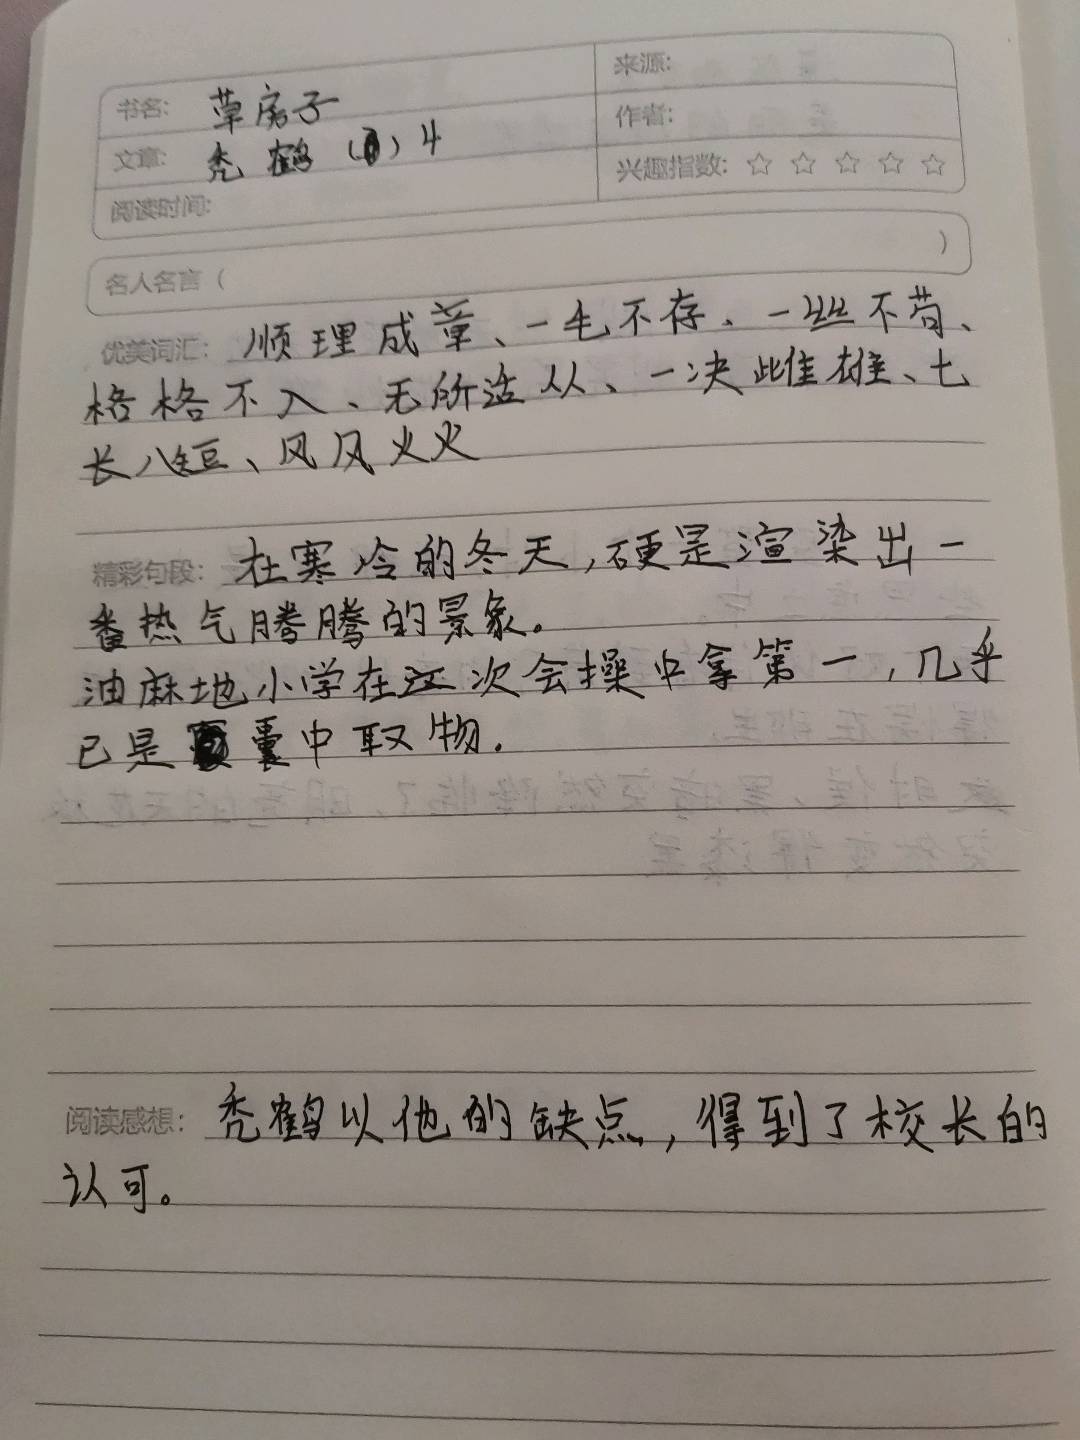 书名: 草房子
来源:
文章: 秃鹤 ( ) 4
作者:
阅读时间:
兴趣指数: ☆ ☆ ☆ ☆ ☆
名人名言 ( )
优美词汇: 顺理成章、一毛不存、一丝不苟、
格格不入、无所适从、一决雌雄、七
长八短、风风火火
精彩句段: 在寒冷的冬天,硬是渲染出一
番热气腾腾的景象。
油麻地小学在这次会操中拿第一,几乎
已是囊中取物.
阅读感想: 秃鹤以他的缺点,得到了校长的
认可。